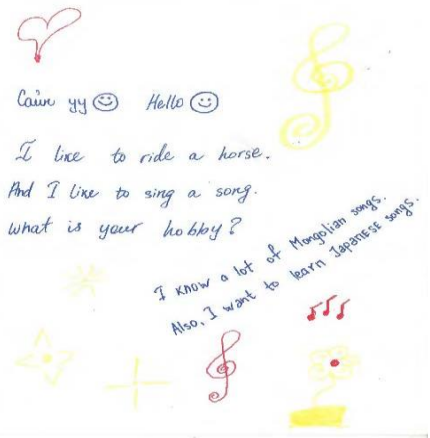 Сайн уу ☺ Hello ☺
I like to ride a horse.
And I like to sing a song.
what is your hobby?
I know a lot of Mongolian songs.
Also, I want to learn Japanese songs.